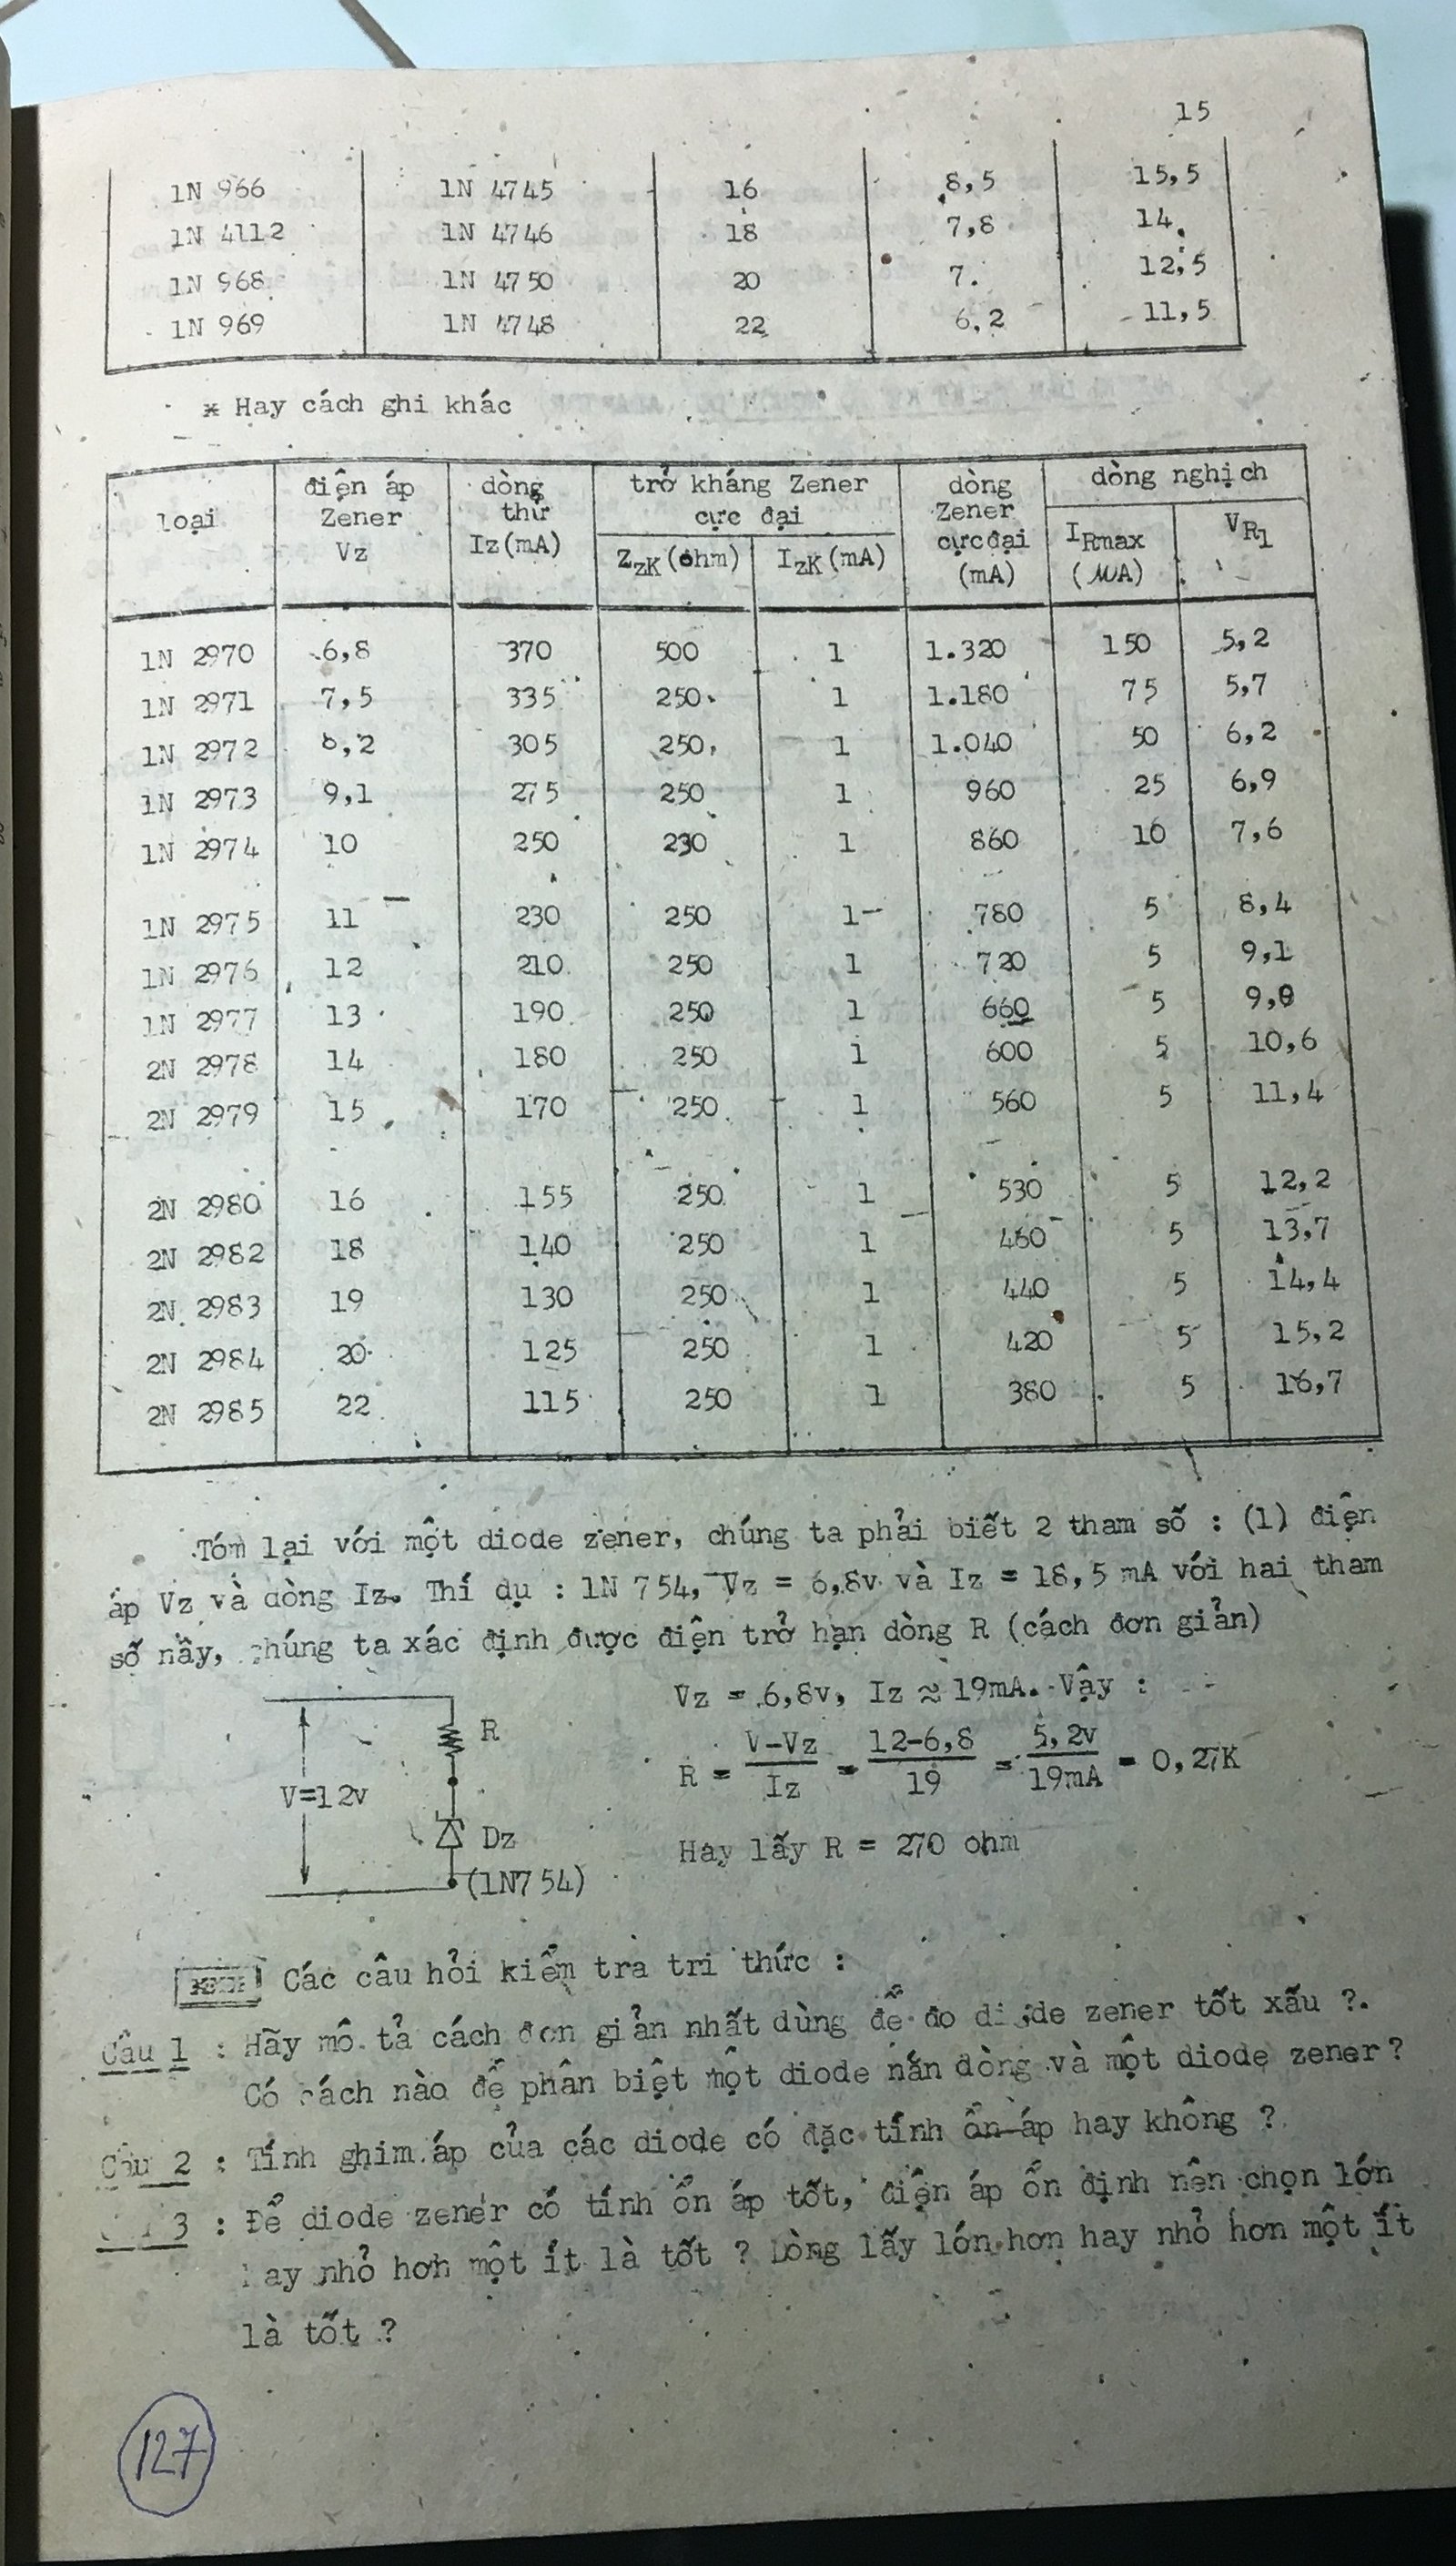 15
1N 966 1N 4745 16 8,5 15,5
1N 4112 1N 4746 18 7,8 14.
1N 968 1N 4750 20 7. 12,5
1N 969 1N 4748 22 6,2 11,5
* Hay cách ghi khác
loại điện áp Zener Vz dòng thử Iz(mA) trở kháng Zener cực đại dòng Zener cực đại (mA) dòng nghịch
ZzK(ohm) IzK(mA) IRmax (µA) VR1
1N 2970 6,8 370 500 1 1.320 150 5,2
1N 2971 7,5 335 250 1 1.180 75 5,7
1N 2972 8,2 305 250 1 1.040 50 6,2
1N 2973 9,1 275 250 1 960 25 6,9
1N 2974 10 250 230 1 860 10 7,6
1N 2975 11 230 250 1 780 5 8,4
1N 2976 12 210 250 1 720 5 9,1
1N 2977 13 190 250 1 660 5
2N 2978 14 180 250 1 600 5 10,6
2N 2979 15 170 250 1 560 5 11,4
2N 2980 16 155 250 1 530 5 12,2
2N 2982 18 140 250 1 460 5 13,7
2N 2983 19 130 250 1 440 5 14,4
2N 2984 20 125 250 1 420 5 15,2
2N 2985 22 115 250 1 380 5 16,7
Tóm lại với một diode zener, chúng ta phải biết 2 tham số : (1) điện
áp Vz và dòng Iz. Thí dụ : 1N 754, Vz = 6,8v và Iz = 18,5 mA với hai tham
số nầy, chúng ta xác định được điện trở hạn dòng R (cách đơn giản)
Vz = 6,8v, Iz ≈ 19mA. Vậy :
R = V-Vz / Iz = 12-6,8 / 19 = 5,2v / 19mA = 0,27K
Hay lấy R = 270 ohm
R
V=12v
Dz
(1N754)
Các câu hỏi kiểm tra tri thức :
Câu 1 : Hãy mô tả cách đơn giản nhất dùng để đo diode zener tốt xấu ?.
Có cách nào để phân biệt một diode nắn dòng và một diode zener ?
Câu 2 : Tính ghim áp của các diode có đặc tính ổn áp hay không ?
3 : Để diode zener có tính ổn áp tốt, điện áp ổn định nên chọn lớn
hay nhỏ hơn một ít là tốt ? Dòng lấy lớn hơn hay nhỏ hơn một ít
là tốt ?
127